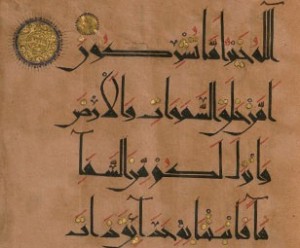 ءَآللَّهُ خَيْرٌ أَمَّا يُشْرِكُونَ
أَمَّنْ خَلَقَ السَّمَوَاتِ وَالْأَرْضَ
وَأَنْزَلَ لَكُمْ مِنَ السَّمَآءِ
مَآءً فَأَنْبَتْنَا بِهِ حَدَآئِقَ ذَاتَ